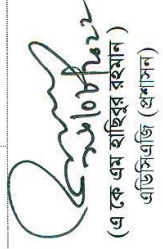 (এ কে এম হাছিবুর রহমান)
এডিসিএজি (প্রশাসন)